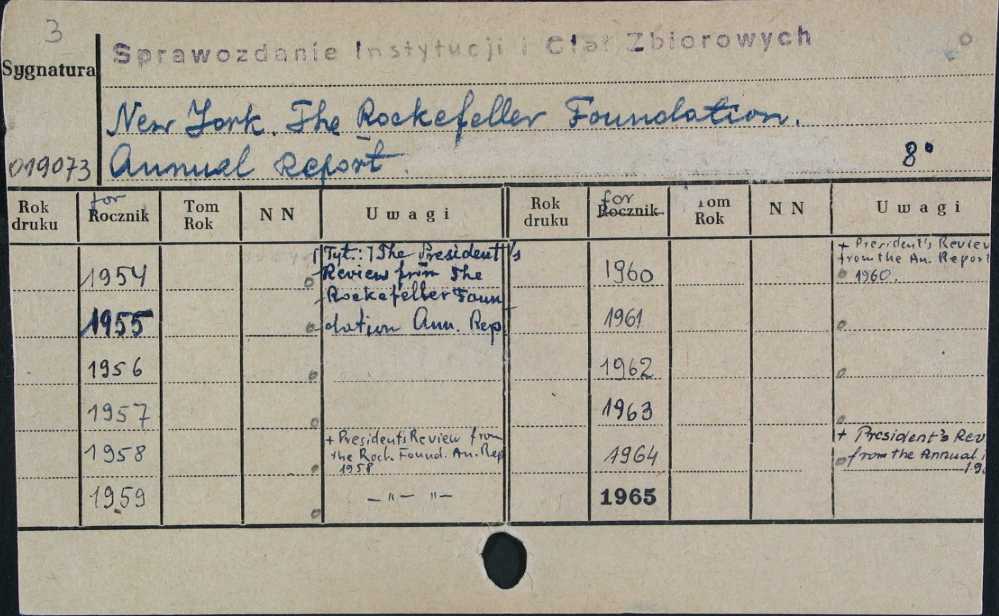 3
Sprawozdanie Instytucji i Ciał Zbiorowych
Sygnatura
New York. The Rockefeller Foundation.
019073 Annual Report. 8°
Rok druku for Rocznik Tom Rok N N Uwagi
1954 [Tyt.:] The President's Review from The
1955 Rockefeller Foundation Ann. Rep.
1956
1957
1958 + President's Review from the Rock. Found. An. Rep 1958
1959 — „ — „ —
Rok druku for Rocznik Tom Rok N N Uwagi
1960 + President's Review from the An. Report 1960.
1961
1962
1963
1964 + President's Rev from the Annual
1965